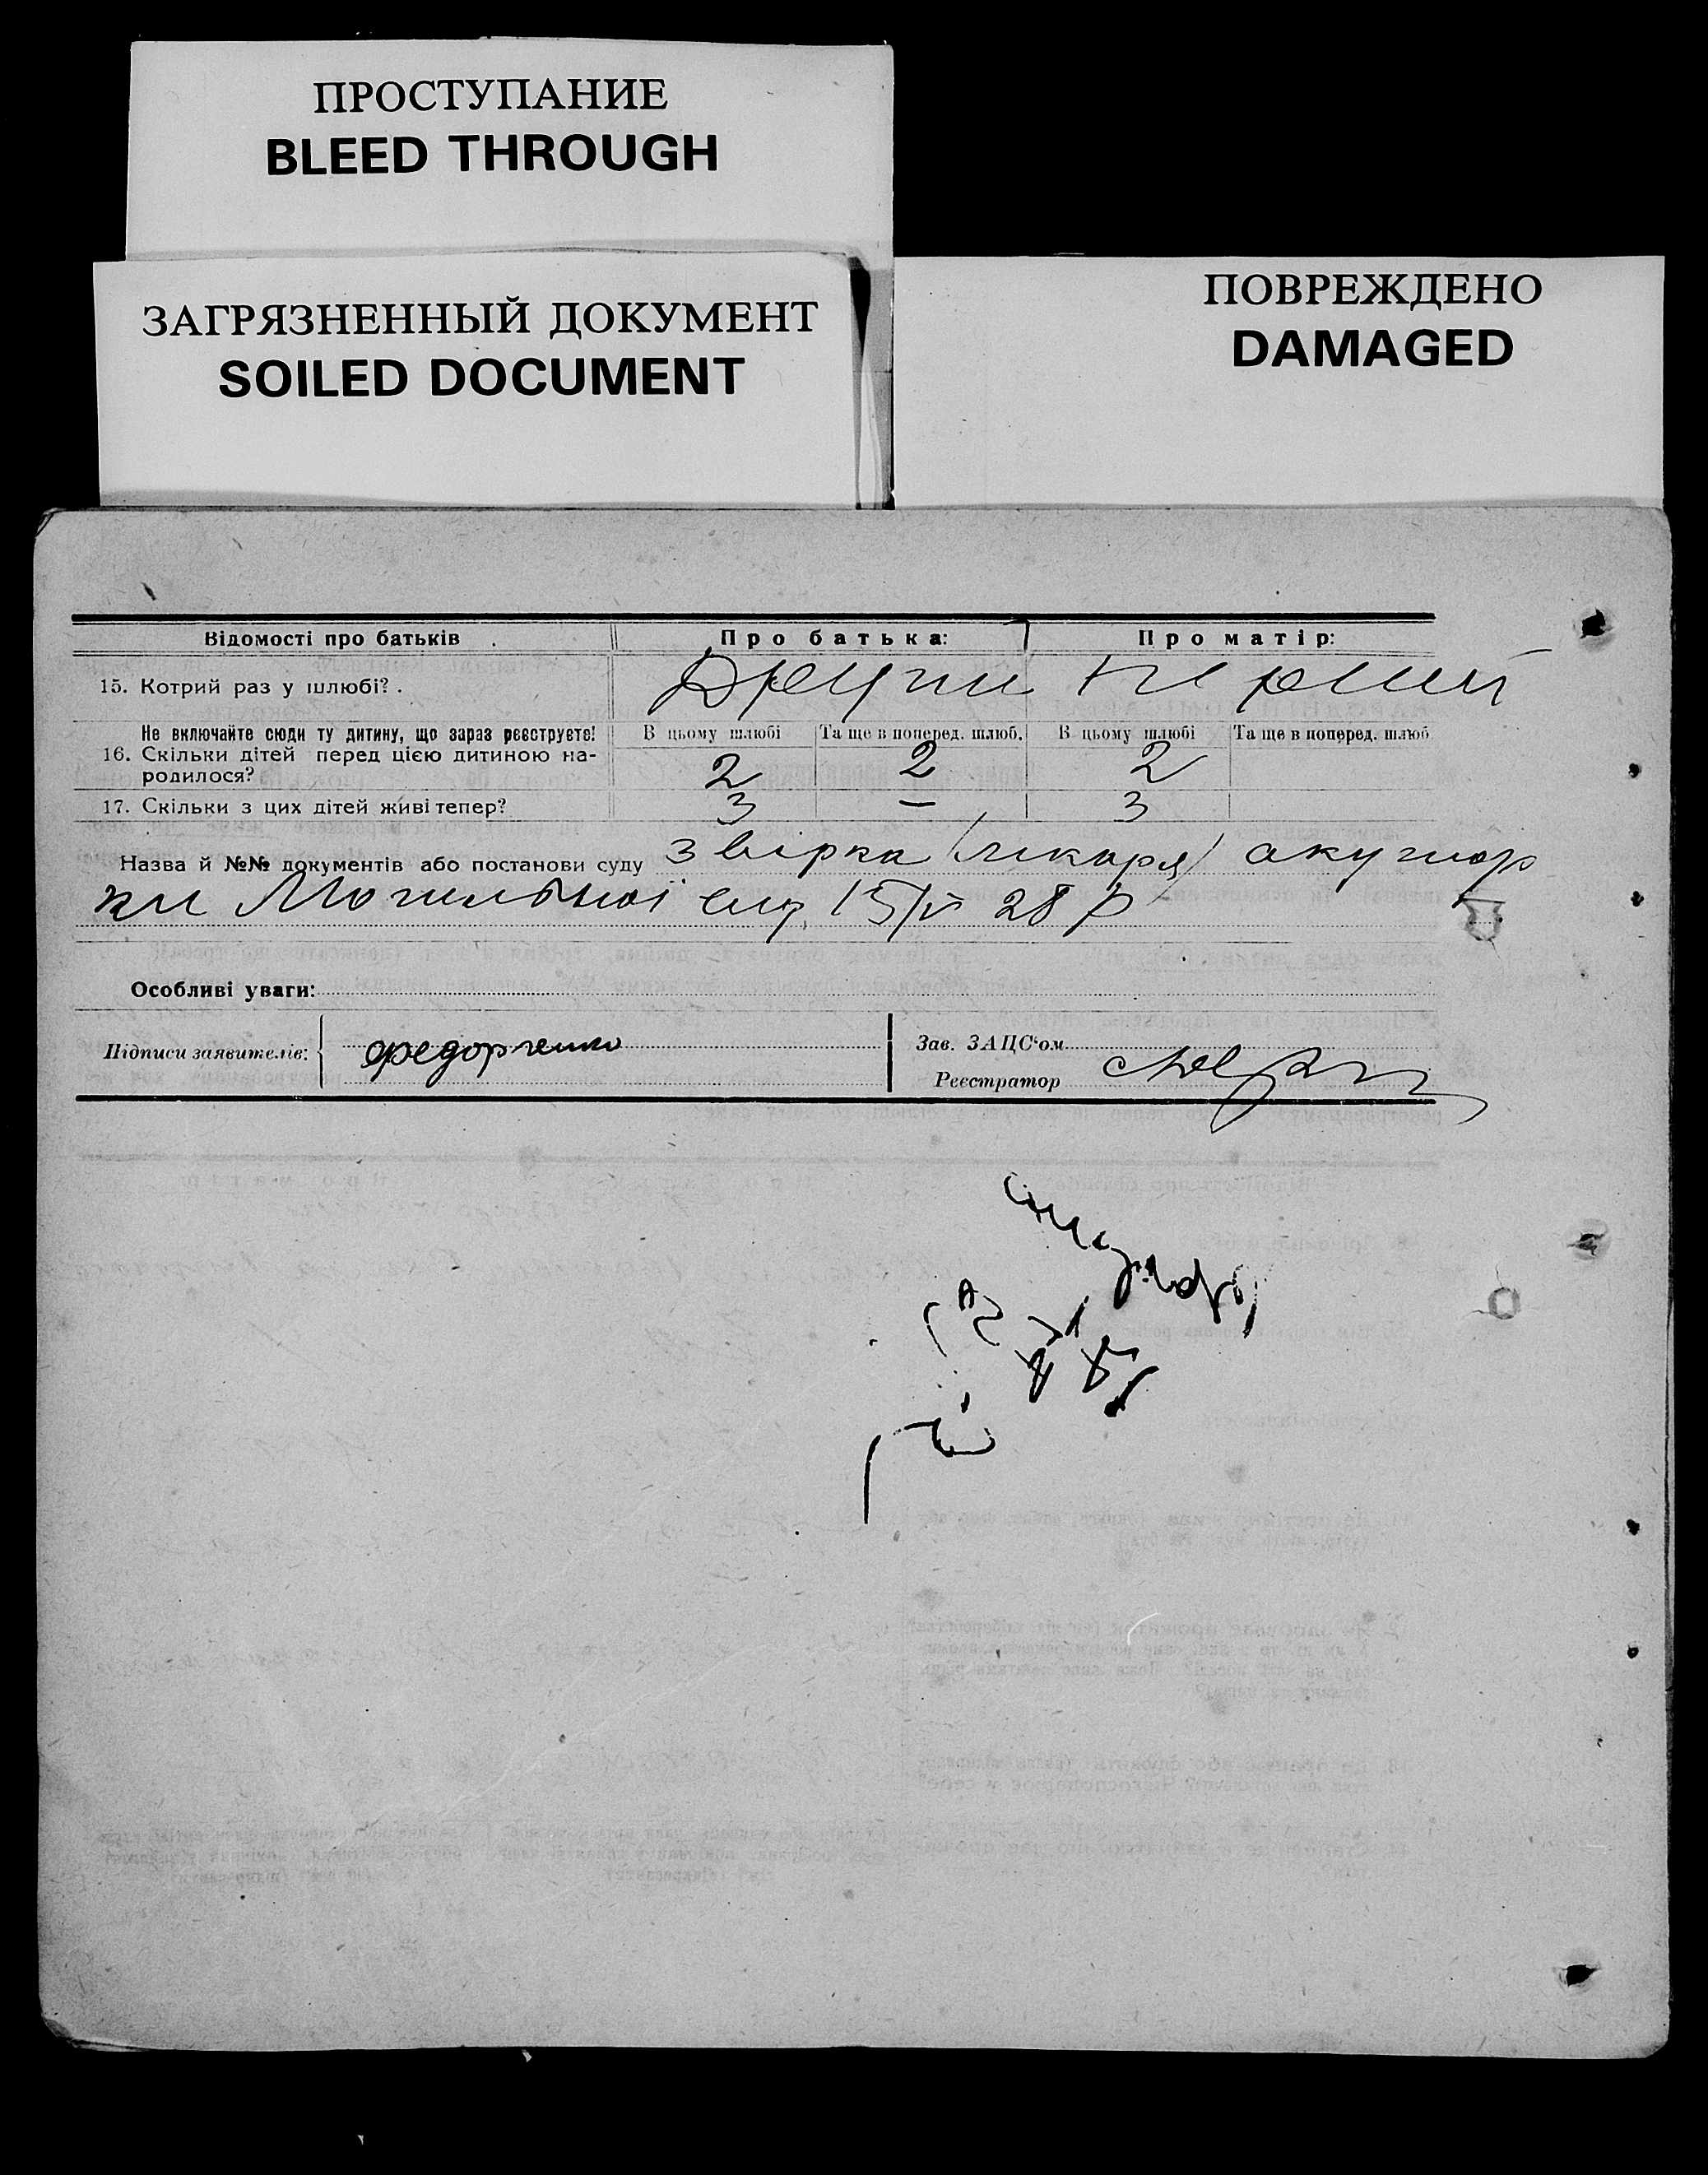 ПРОСТУПАНИЕ
BLEED THROUGH
ЗАГРЯЗНЕННЫЙ ДОКУМЕНТ
SOILED DOCUMENT
ПОВРЕЖДЕНО
DAMAGED
Відомості про батьків Про батька: Про матір:
15. Котрий раз у шлюбі? Другий перший
Не включайте сюди ту дитину, що зараз реєструєте! В цьому шлюбі Та ще в поперед. шлюб. В цьому шлюбі Та ще в поперед. шлюб
16. Скільки дітей перед цією дитиною на-
родилося? 2 2 2
17. Скільки з цих дітей живі тепер? 3 — 3
Назва й №№ документів або постанови суду звірка (лікаря) акушор
ки Могильної 15/V 28 р
Особливі уваги:
Підписи заявителів: Федорченко
Зав. ЗАЦС'ом
Реєстратор